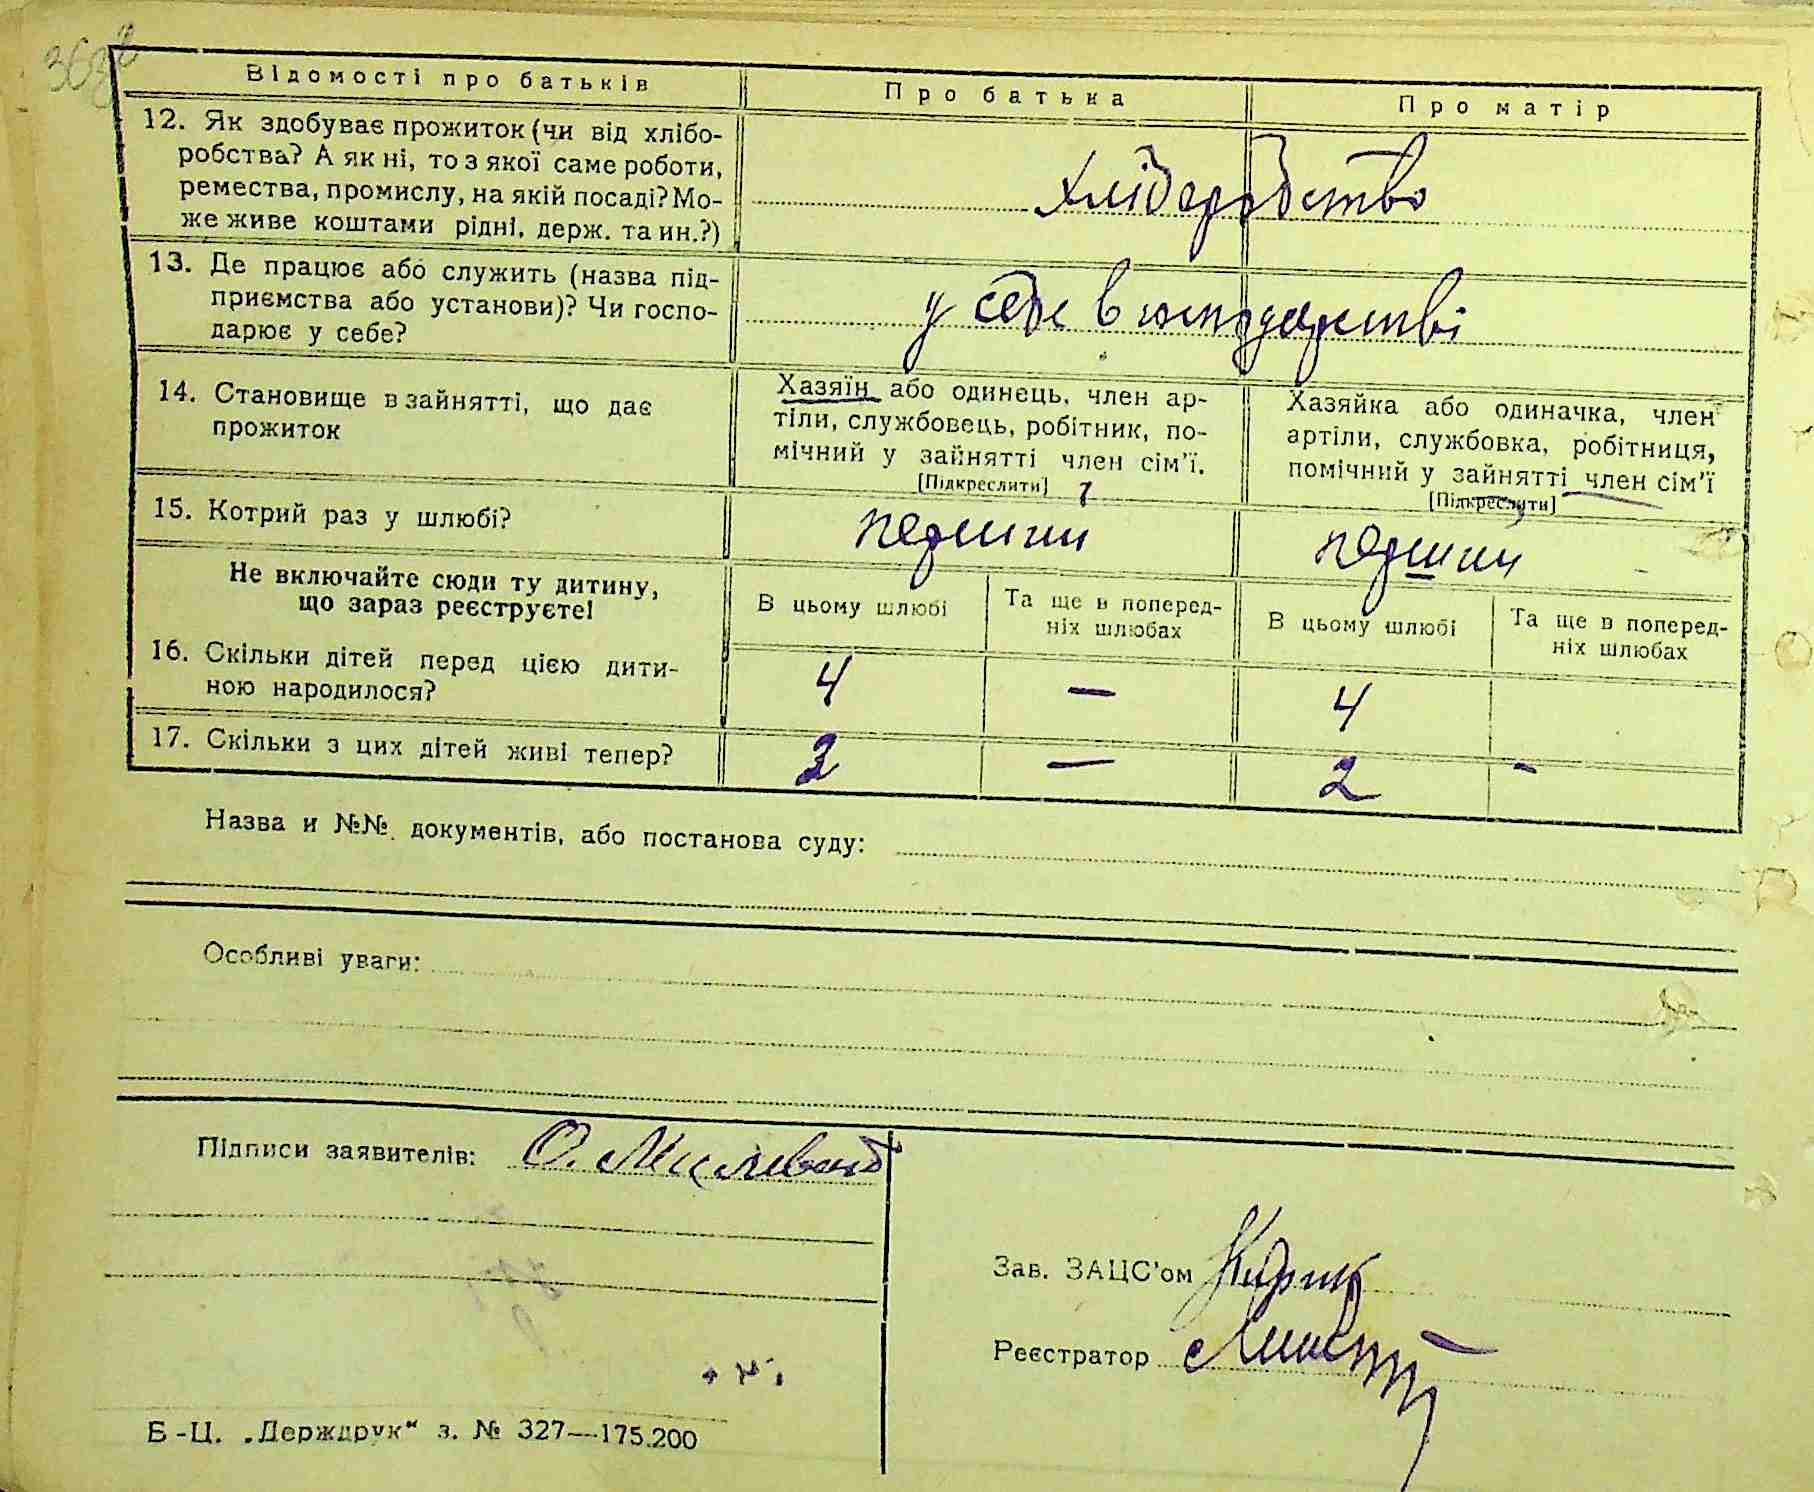 Відомості про батьків
Про батька
Про матір
12. Як здобуває прожиток (чи від хлібо-
робства? А як ні, то з якої саме роботи,
ремества, промислу, на якій посаді? Мо-
же живе коштами рідні, держ. та ин.?)
хліборобство
13. Де працює або служить (назва під-
приємства або установи)? Чи госпо-
дарює у себе?
у себе в господарстві
14. Становище в зайнятті, що дає
прожиток
Хазяїн або одинець, член ар-
тіли, службовець, робітник, по-
мічний у зайнятті член сім'ї.
[Підкреслити]
Хазяйка або одиначка, член
артіли, службовка, робітниця,
помічний у зайнятті член сім'ї
[Підкреслити]
15. Котрий раз у шлюбі?
перший
перший
Не включайте сюди ту дитину,
що зараз реєструєте!
В цьому шлюбі
Та ще в поперед-
ніх шлюбах
В цьому шлюбі
Та ще в поперед-
ніх шлюбах
16. Скільки дітей перед цією дити-
ною народилося?
4
—
4
17. Скільки з цих дітей живі тепер?
2
—
2
-
Назва и №№. документів, або постанова суду:
Особливі уваги:
Підписи заявителів: О.
Зав. ЗАЦС'ом
Реєстратор
Б-Ц. „Держдрук“ з. № 327—175.200